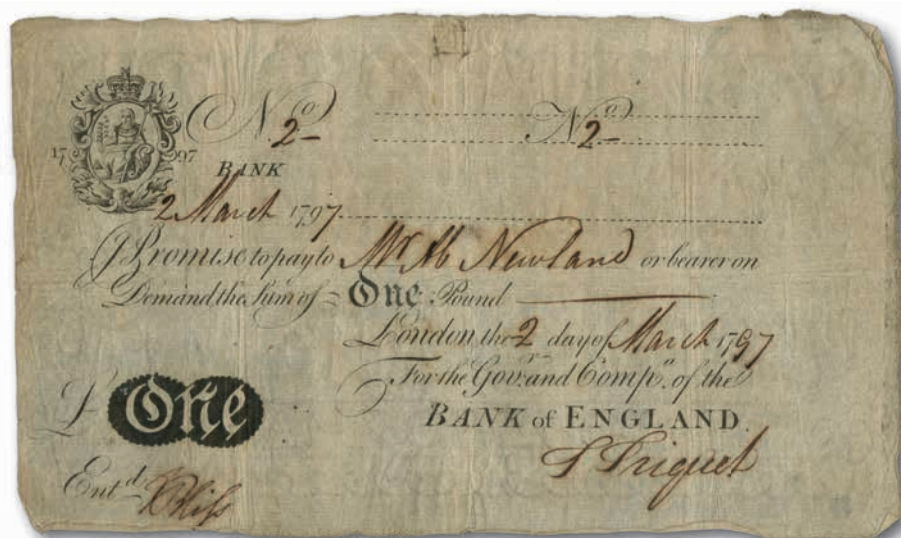 No 2 No 2
17 97
BANK
2 March 1797
I Promise to pay to Mr Ab Newland or bearer on
Demand the Sum of One Pound
London the 2 day of March 1797
For the Govr. and Compa. of the
BANK of ENGLAND.
£ One
Entd.